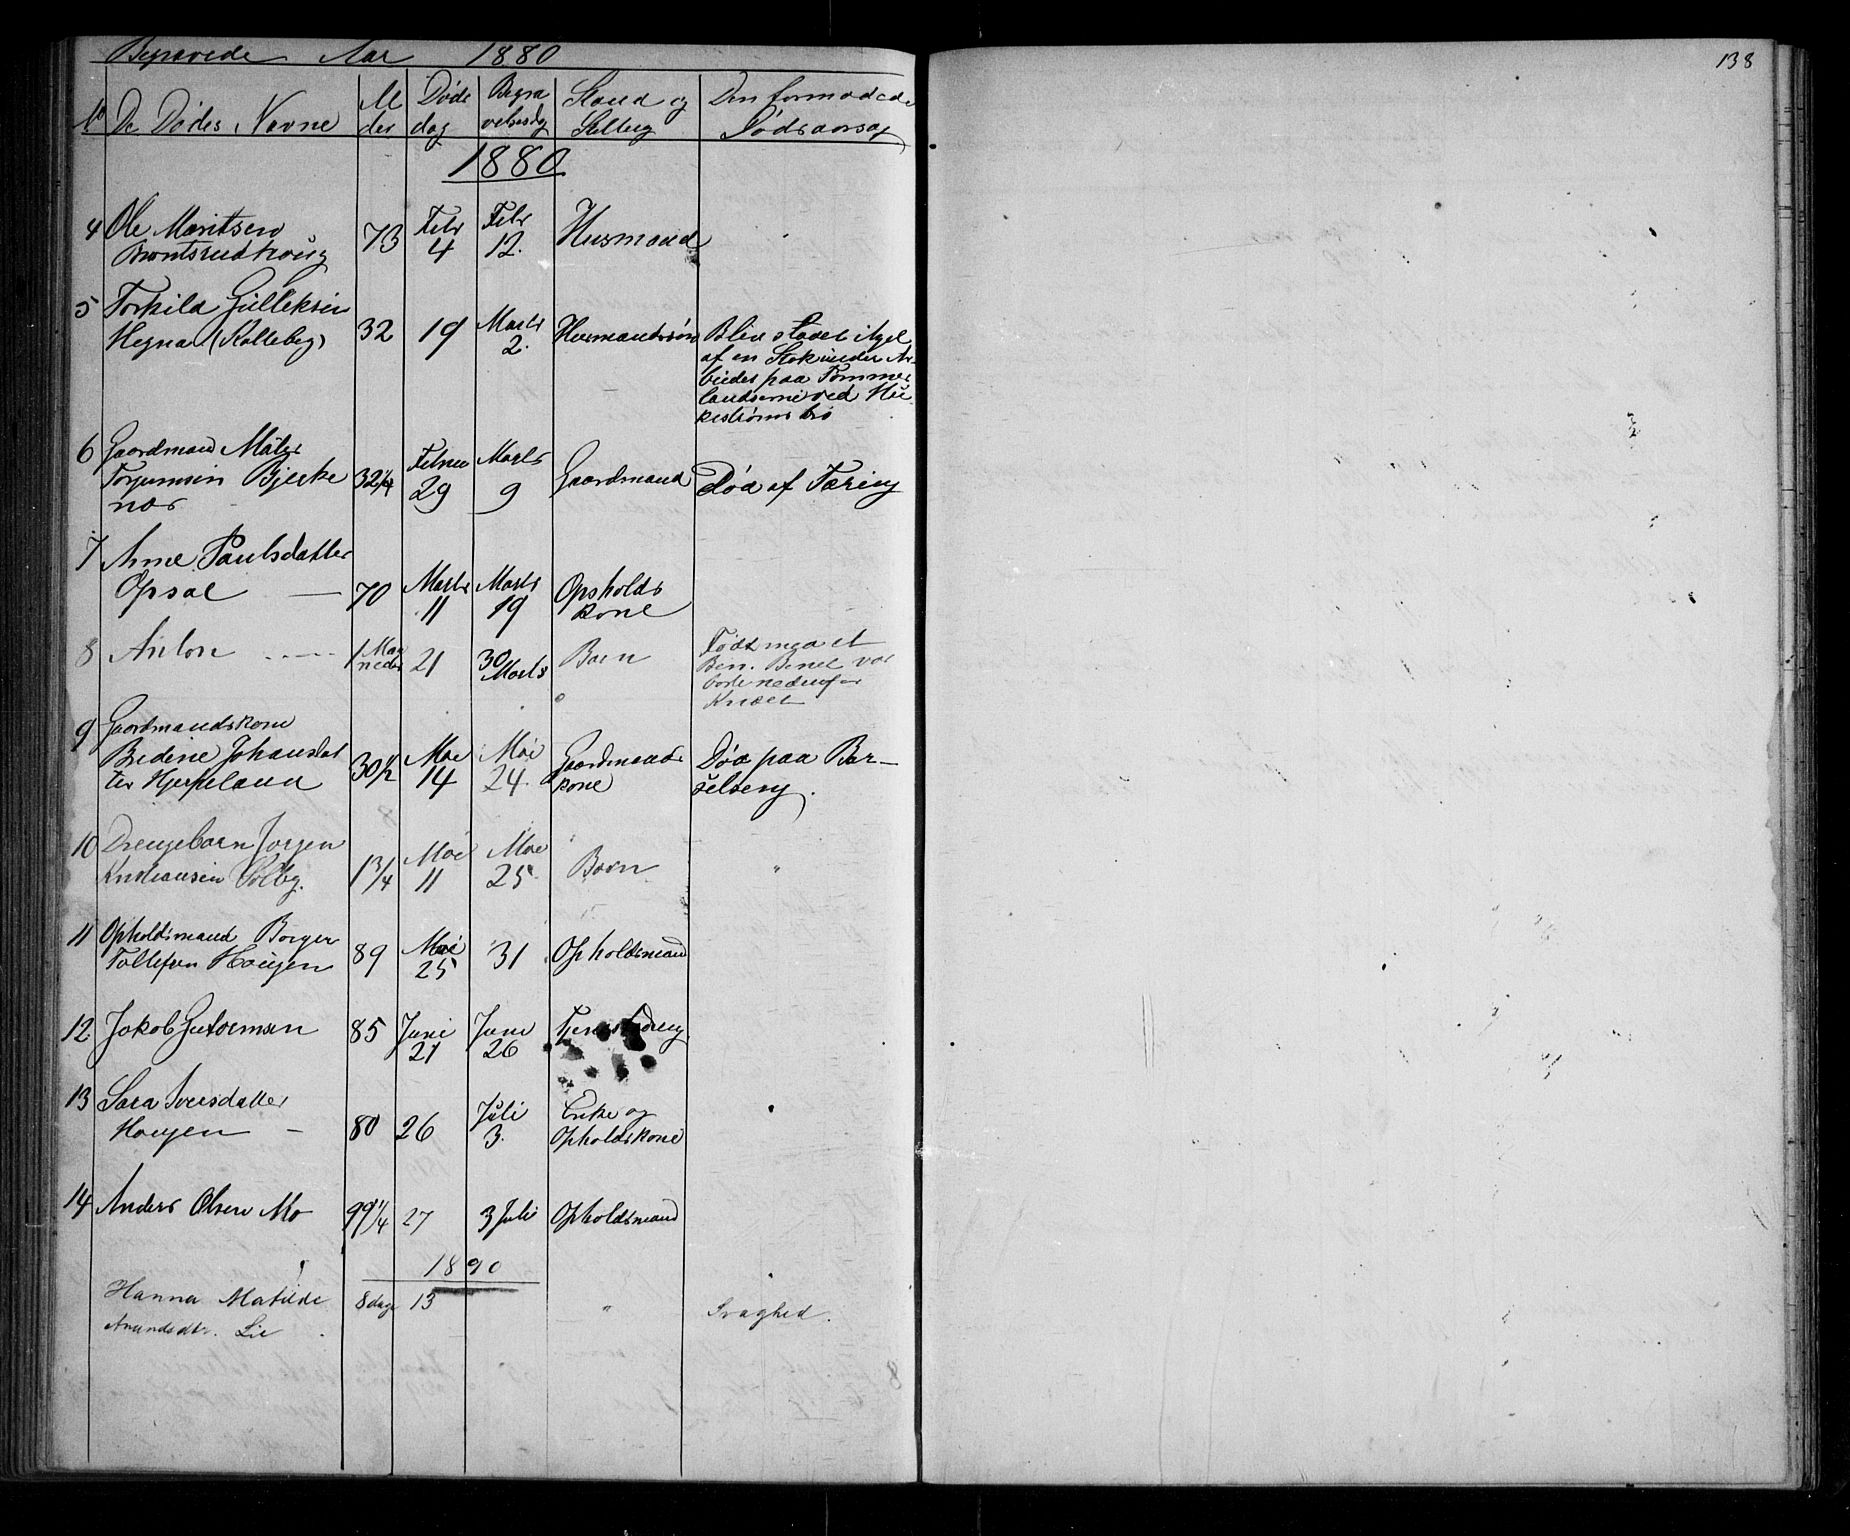 Begravede Aar 1880
138
No De Dødes Navne Alder Døds dag Begravelsesdg Stand og Stilling Den formodede Dødsaarsag
1880
4 Ole Moritsen 73 Febr 4 Febr 12. Husmand
5 Torkild Gulleksen
Hegna (Kolleberg) 32 19 Marts 2. Husmandssøn Blev stødet ihjel
af en Stok under Ar-
beidet paa Tømmer
6 Gaardmand
Torgrimsen Bjerke 32 1/4 Februar 29 Marts 9 Gaardmand Død af Tæring
nær
7 Anne Paulsdatter
Opsal — 70 Marts 11 Marts 19 Opholds
kone
8 Anton 1 Maaneder 21 30 Marts Barn Født med et
Ben. Benet var
borte nedenfor
Knæet
9 Gaardmandskone
Bredine Johansdat
ter 30 1/2 Mai 14 Mai 24. Gaardmands
kone Død paa Bar-
selseng.
10 Drengebarn Jørgen
Kristiansen Solbg. 1 3/4 Mai 11 Mai 25 Barn "
11 Opholdsmand Borger
Tollefsen Haugen 89 Mai 25 31 Opholdsmand
12 Jakob Guttormsen 85 Juni 21 Juni 26
13 Sara Iversdatter
Haugen — 80 26 Juli 3. Enke og
Opholdskone
14 Anders Olsen Mo 99 1/4 27 3 Juli Opholdsmand
1890
Hanna Matilde 8 dage 13 " Svaghed.
Amundsdtr. Lie